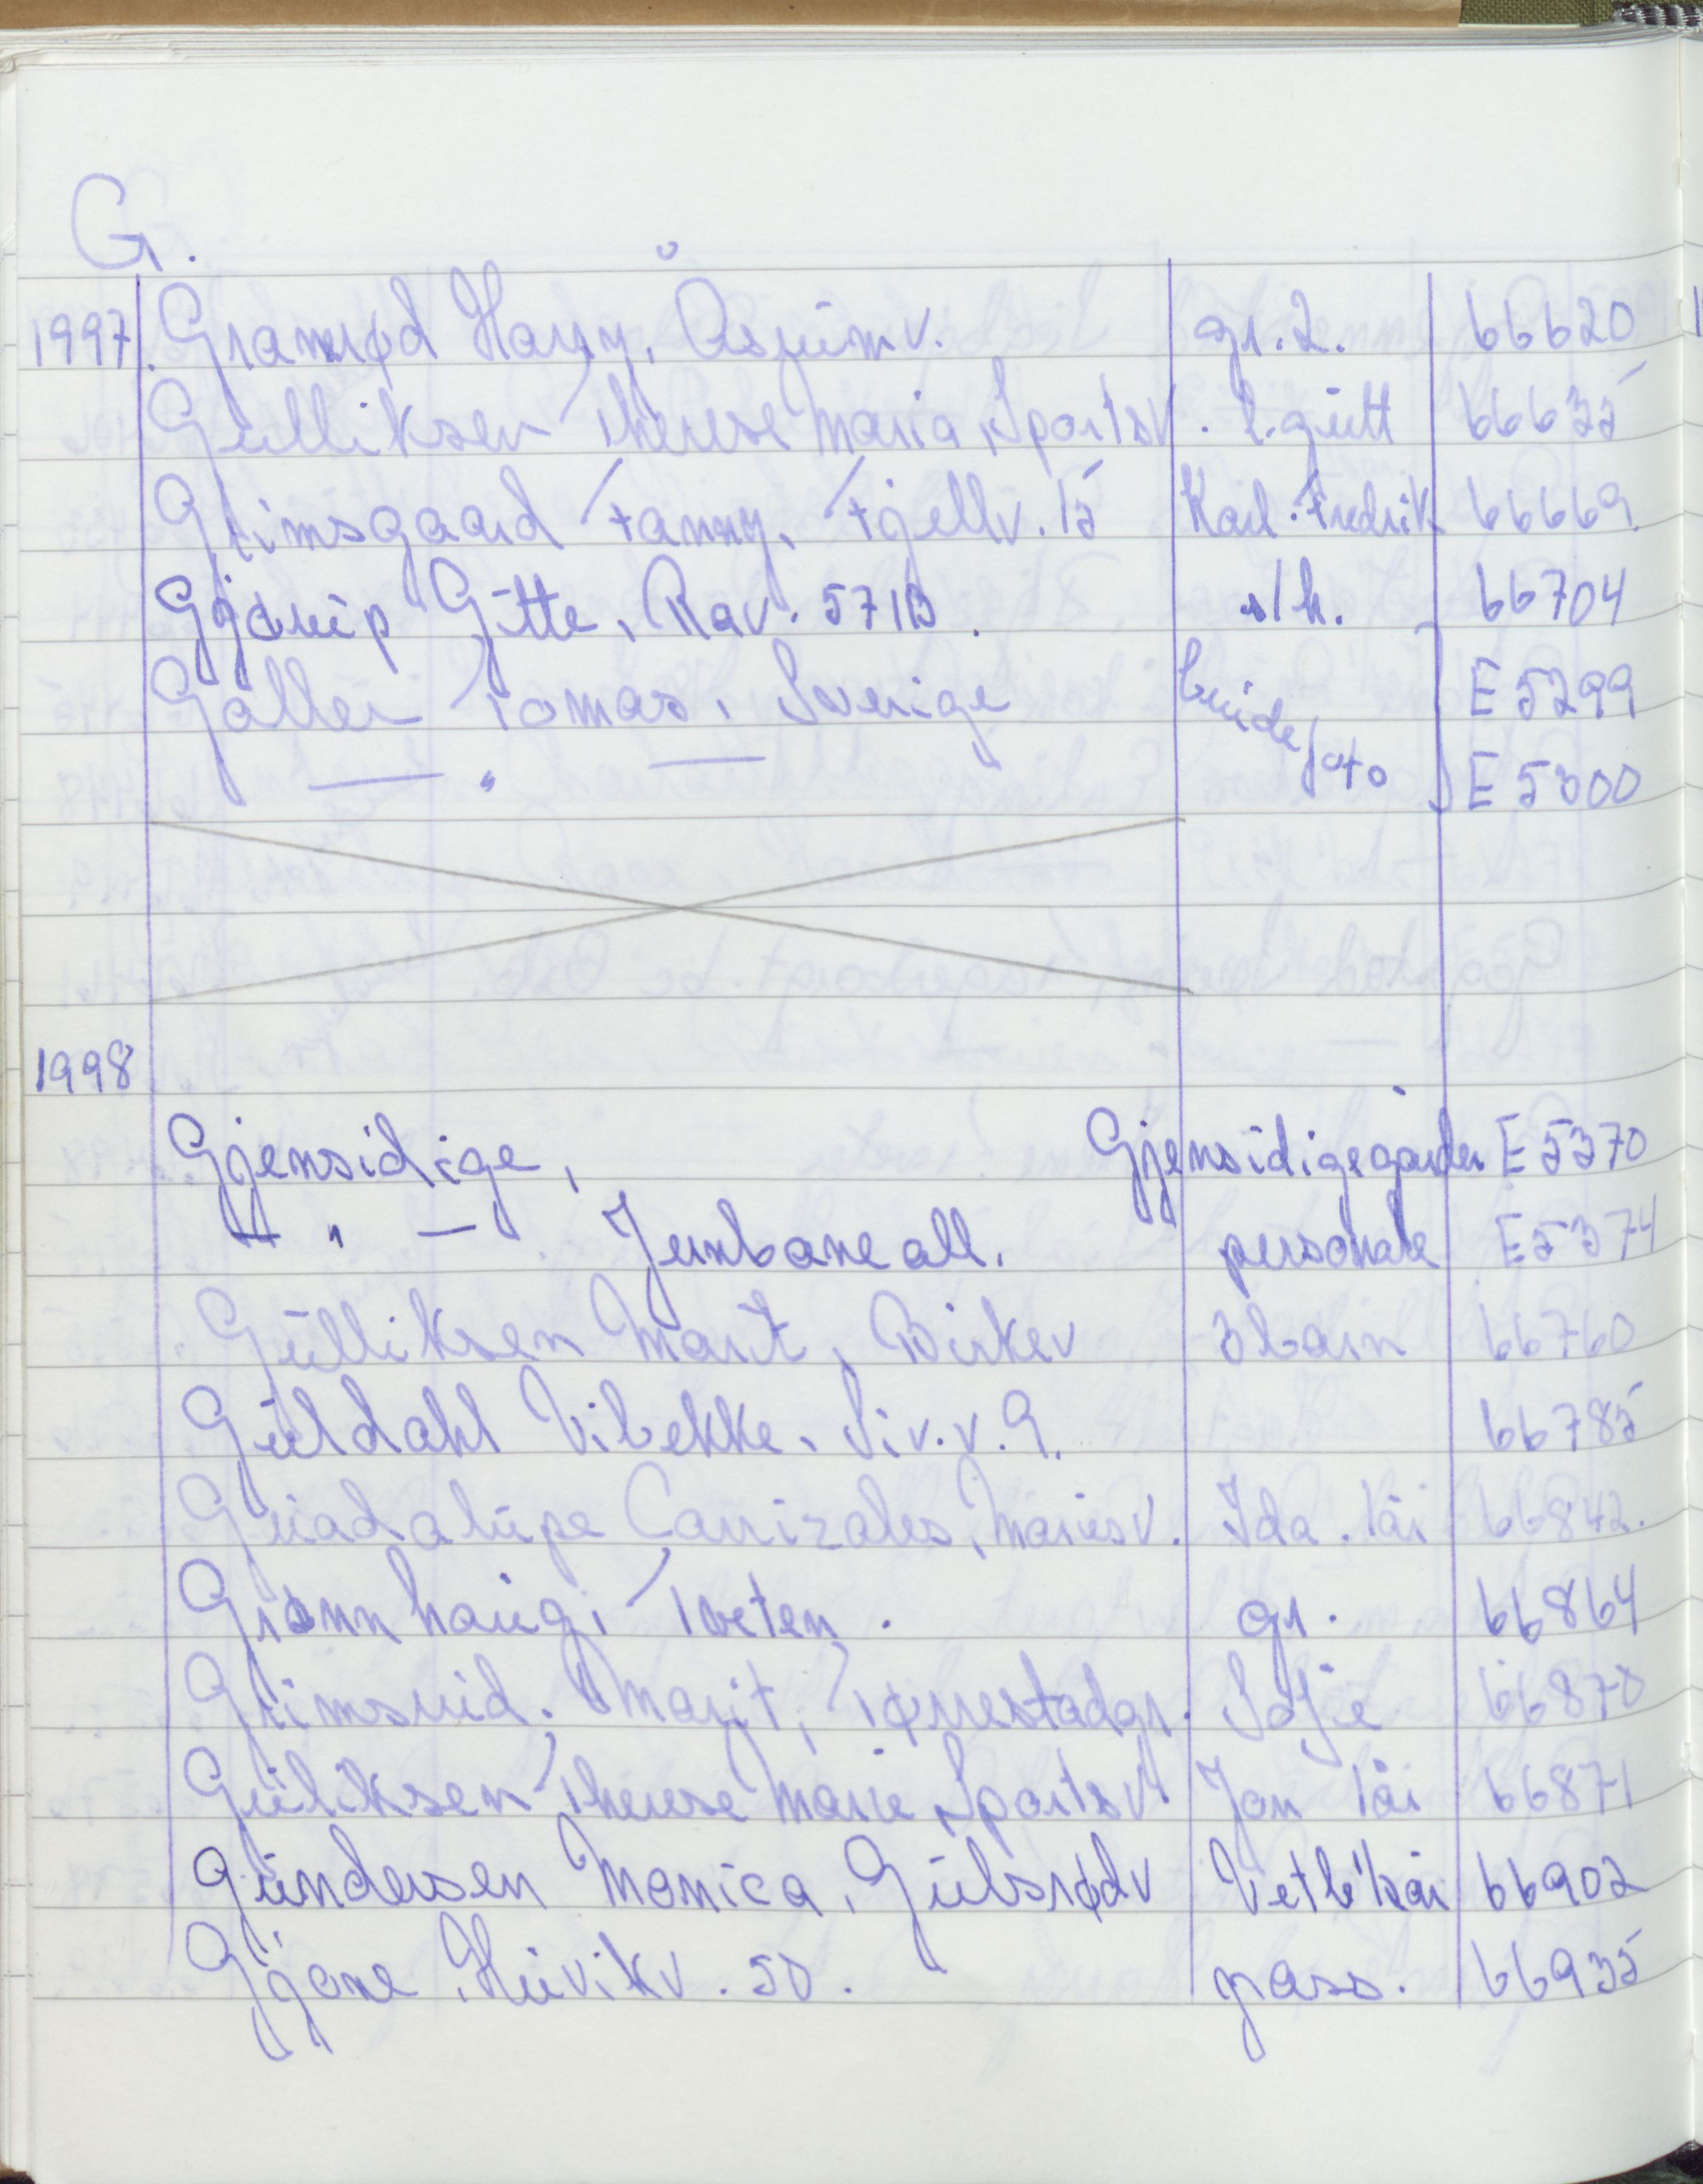 G.
1997. Gramrød Harry, Åsrumv. gr. 2. 66620
Gulliksen Therese Maria, Sportsv. l. gutt 66635
Grimsgaard Fanny, Fjellv. 15 Karl. Fredrik 66669.
Gjørup Gitte, Rav. 57B. s/h. 66704
Galler Tomas, Sverige beide foto E 5299
— " — E 5300
1998
Gjensidige, Gjensidigegården E 5370
— " — Jernbaneall. personale E 5374
Gulliksen Marit, Birkev 3 barn 66760
Guldahl Vibekke. Siv. v. 9. 66785
Guadalupe Carrizales, Mariesv. Ida. 1år 66842.
Grønnhaug, Tveten. gr. 66864
Grimsrud. Marit, Tørrestadgr. 66870
Guliksen Therese Marie, Sportsv Jon 1år 66871
Gundersen Monica, Gulsrødv 66902
Gjone, Huvikv. 50. pass. 66935